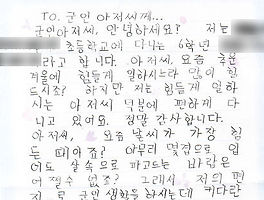 TO. 군인 아저씨께...
군인아저씨, 안녕하세요? 저는
초등학교에 다니는 6학년
라고 합니다. 아저씨, 요즘 추운
겨울에 힘들게 일하시느라 많이 힘
드시죠? 하지만 저는 힘들게 일하
시는 아저씨 덕분에 편하게 다
니고 있어요. 정말 감사합니다.
아저씨, 요즘 날씨가 가장 힘
든 때이죠? 아무리 몇겹으로 입
어도 살 속으로 파고드는 바람은
어쩔수 없죠? 그래서 저의 편
지로 군인 생활을 하시는데 커다란